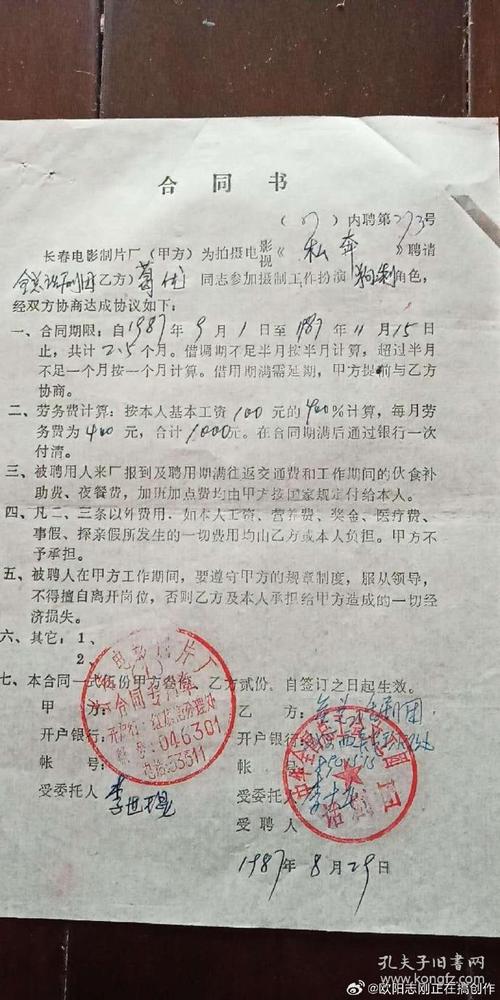 合同书
(87)内聘第273号
长春电影制片厂(甲方)为拍摄电影视《私奔》聘请
全总话剧团乙方)葛优同志参加摄制工作扮演 角色,
经双方协商达成协议如下:
一、合同期限:自1987年9月1日至1987年11月15日
止,共计2.5个月。借调期不足半月按半月计算,超过半月
不足一个月按一个月计算。借用期满需延期,甲方提前与乙方
协商。
二、劳务费计算:按本人基本工资100元的400%计算,每月劳
务费为400元,合计1000元。在合同期满后通过银行一次
付清。
三、被聘用人来厂报到及聘用期满往返交通费和工作期间的伙食补
助费、夜餐费,加班加点费均由甲方按国家规定付给本人。
四、凡二、三条以外费用,如本人工资、营养费、奖金、医疗费、
事假、探亲假所发生的一切费用均由乙方或本人负担。甲方不
予承担。
五、被聘人在甲方工作期间,要遵守甲方的规章制度,服从领导,
不得擅自离开岗位,否则乙方及本人承担给甲方造成的一切经
济损失。
六、其它:1、
2、
七、本合同一式伍份甲方叁份,乙方贰份,自签订之日起生效。
甲方:
开户银行:
帐号:
受委托人
电影制片厂
合同专用章
开户行:红旗街办理处
帐号:046301
电话:53311
乙方:全总话剧团
开户银行:
帐号:
受委托人
受聘人
中华全国总工会
话剧团
1987年8月29日
孔夫子旧书网
@欧阳志刚正在搞创作